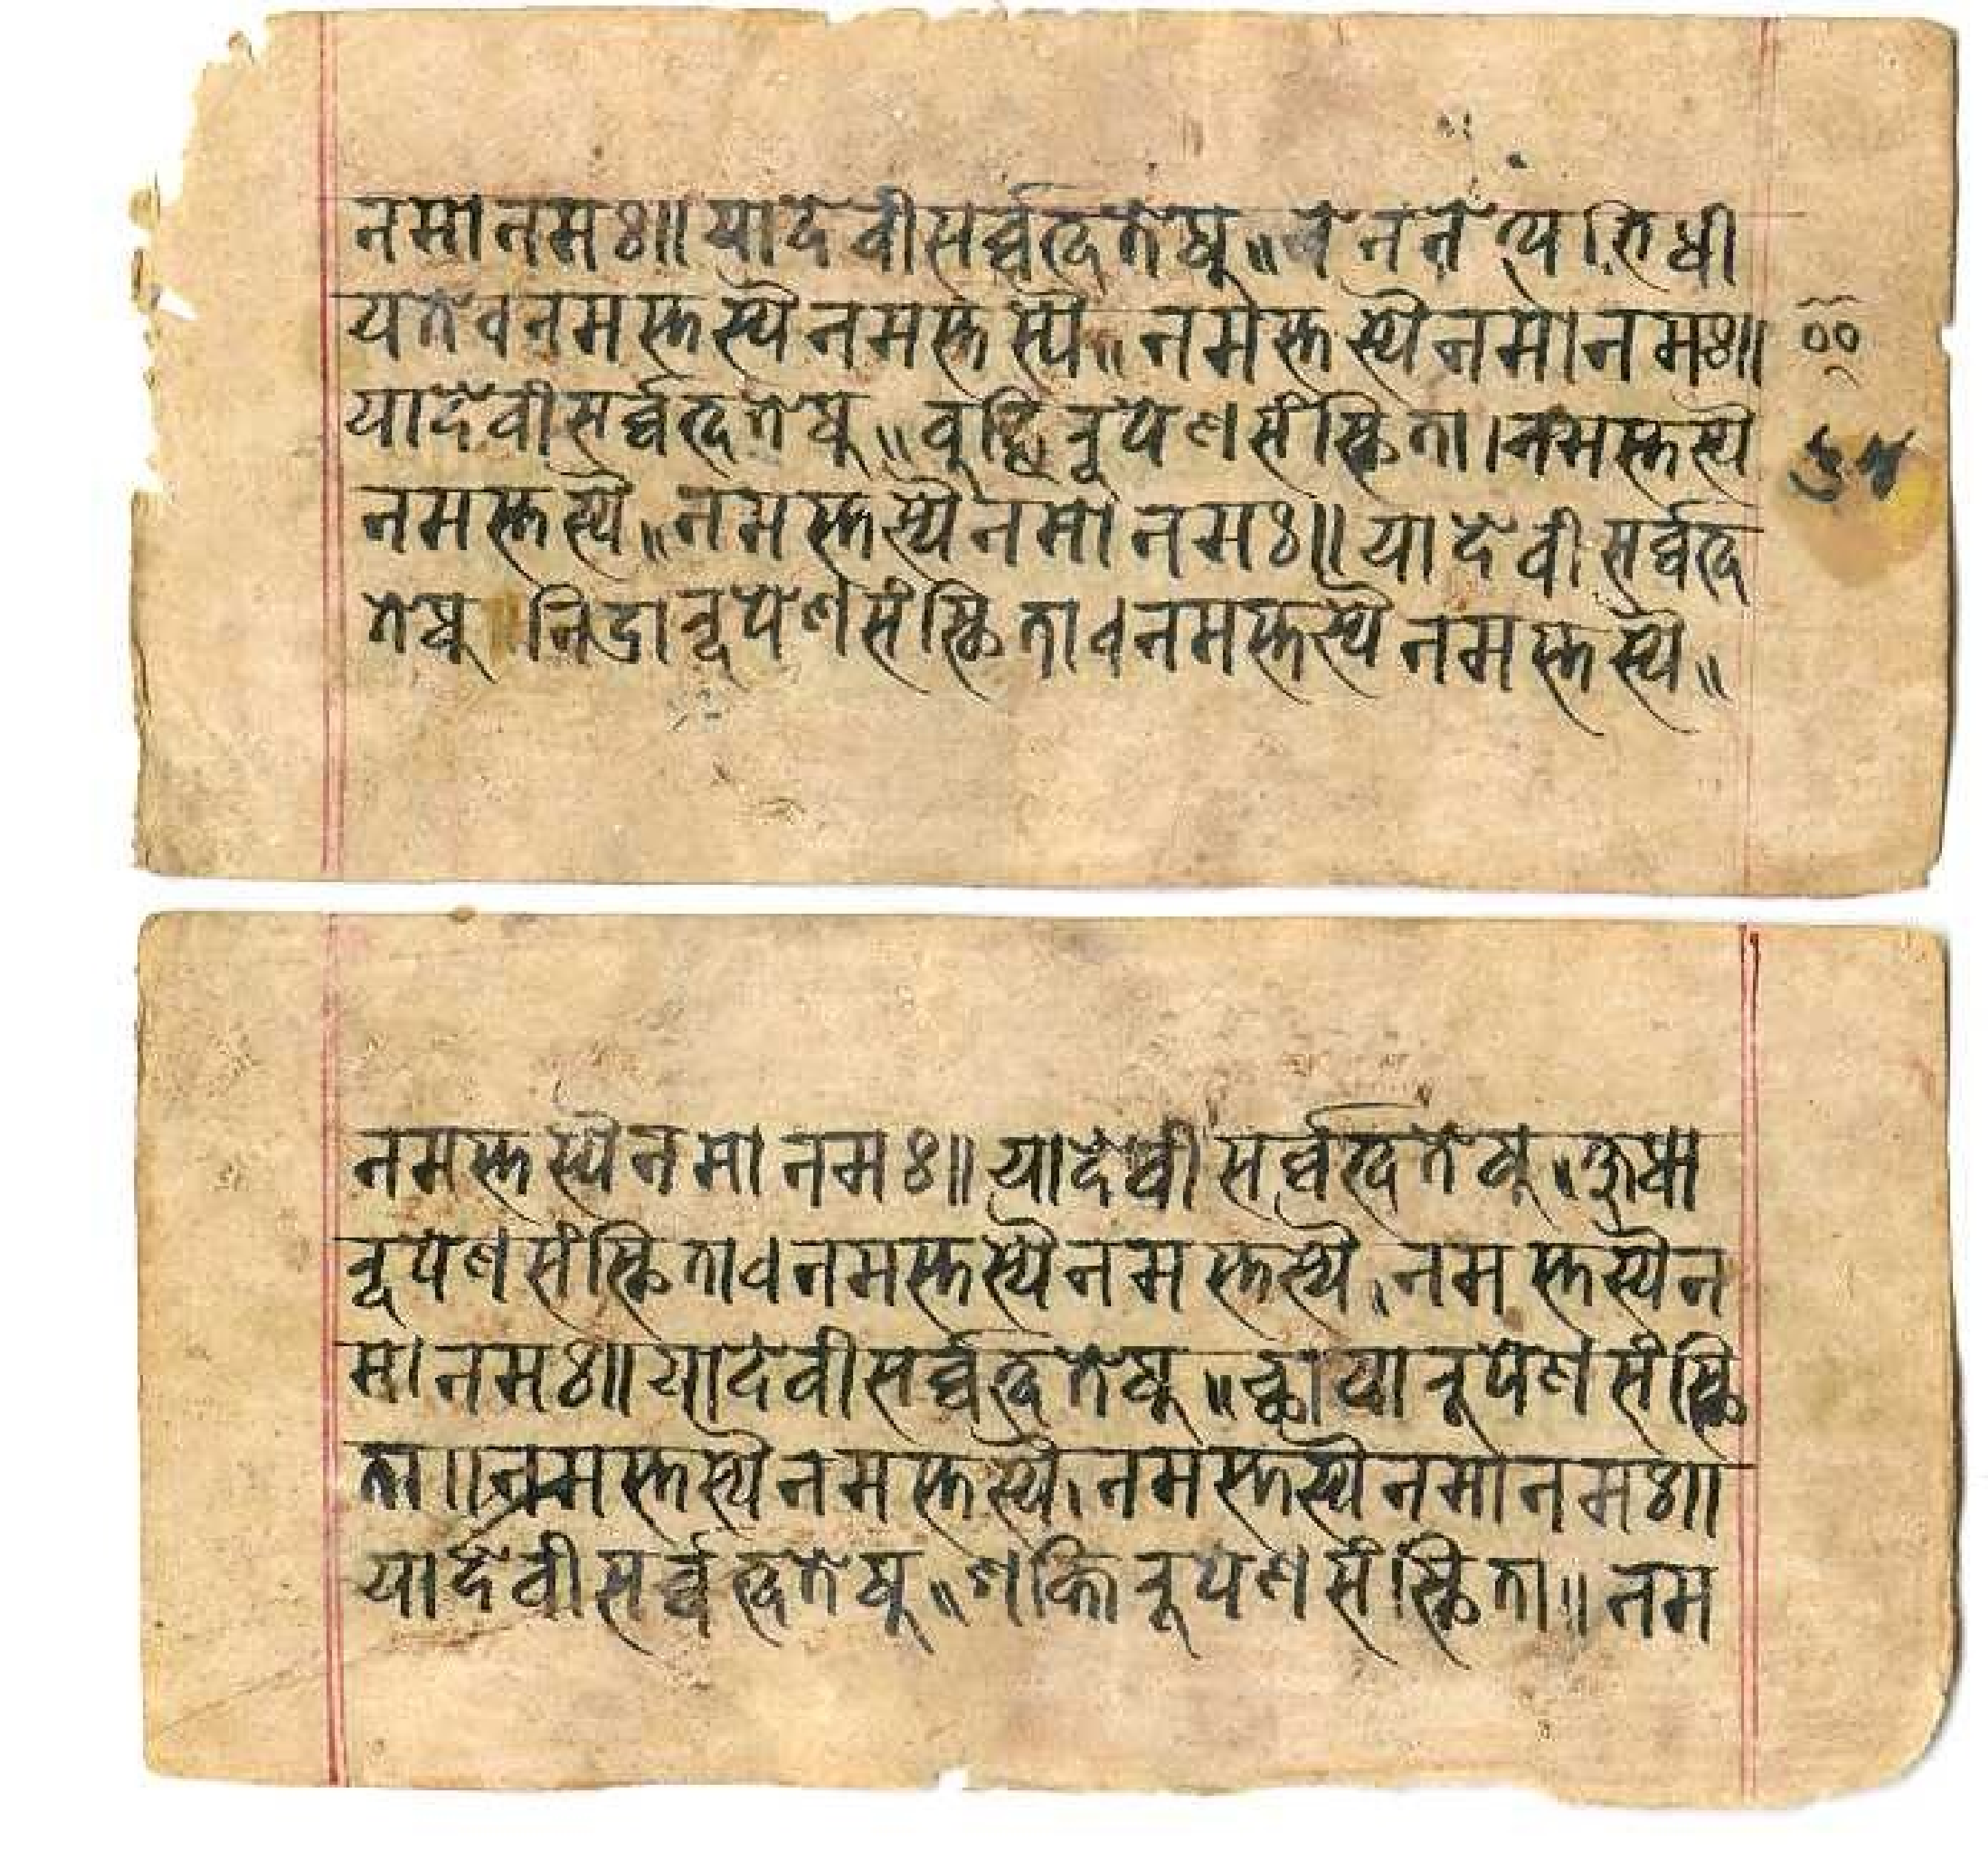 नमोनमः॥ यादेवीसर्व्वभूतेषू॥ चेतनेत्यभिधी
यतेवनमस्तस्यैनमस्तस्यै॥ नमस्तस्यैनमोनमः॥
यादेवीसर्व्वभूतेषू॥ वुद्धिरूपेणसंस्थिता।नमस्तस्यै
नमस्तस्यै॥ नमस्तस्यैनमोनमः॥ यादेवीसर्व्वभू
तेषू निद्रारूपेणसंस्थितावनमस्तस्यैनमस्तस्यै॥
नमस्तस्यैनमोनमः॥ यादेवीसर्व्वभूतेषू॥ क्षुधा
रूपेणसंस्थितावनमस्तस्यैनमस्तस्यै॥ नमस्तस्यैन
मोनमः॥ यादेवीसर्व्वभूतेषू॥ छायारूपेणसंस्थि
ता॥ नमस्तस्यैनमस्तस्यै।नमस्तस्यैनमोनमः॥
यादेवीसर्व्वभूतेषू॥ शक्तिरूपेणसंस्थिता॥ नम